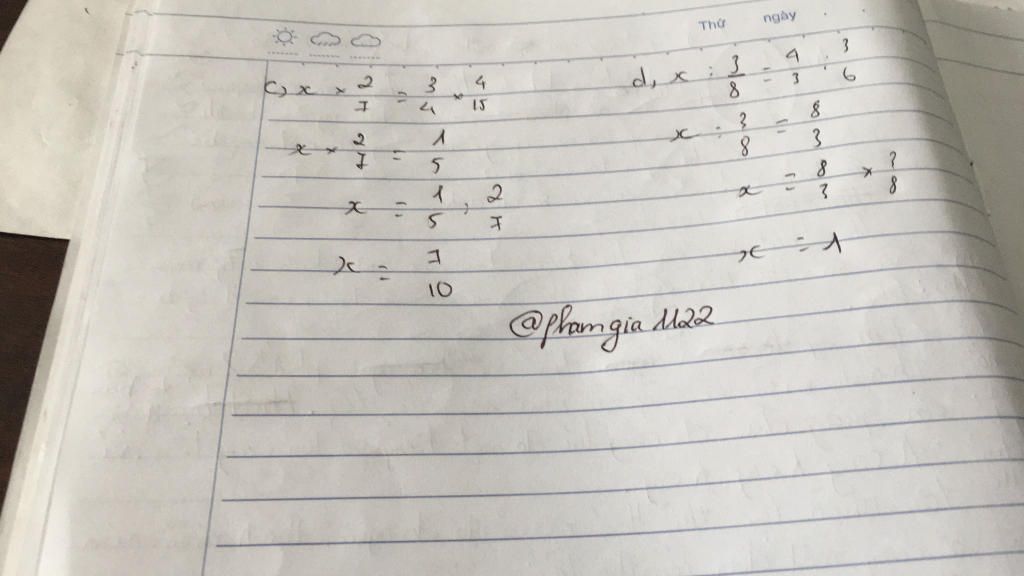 Thứ ngày
c, x × 2/7 = 3/4 × 4/15
x × 2/7 = 1/5
x = 1/5 : 2/7
x = 7/10
d, x : 3/8 = 4/3 : 3/6
x : 3/8 = 8/3
x = 8/3 × 3/8
x = 1
@phamgia1122